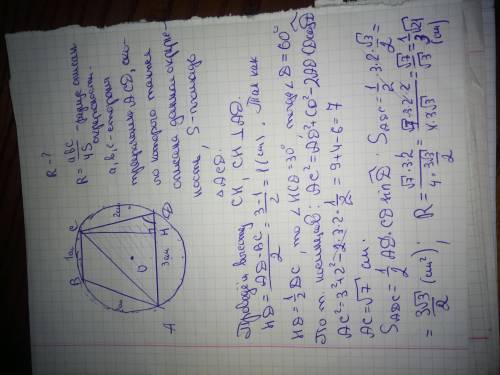 R - ?
R = abc / 4S - радиус описан.
окружности.
a, b, c - стороны
треугольника ACD, око-
ло которого также
описана данная окруж-
ность, S - площадь
△ACD.
B 1см C
2см
2см
O
A 3см H D
Проведём высоту CH, CH ⊥ AD.
HD = (AD - BC) / 2 = (3 - 1) / 2 = 1 (см). Так как
HD = 1/2 DC, то ∠HCD = 30°, тогда ∠D = 60°
По т. косинусов: AC² = AD² + CD² - 2AD·CD·cosD
AC² = 3² + 2² - 2·3·2·1/2 = 9 + 4 - 6 = 7
AC = √7 см.
S_ADC = 1/2 AD·CD·sinD; S_ADC = 1/2·3·2·√3/2 =
= 3√3/2 (см²); R = √7·3·2 / (4·3√3/2) = √7·3·2·2 / (4·3√3) = √7/√3 = √(7/3) (см)